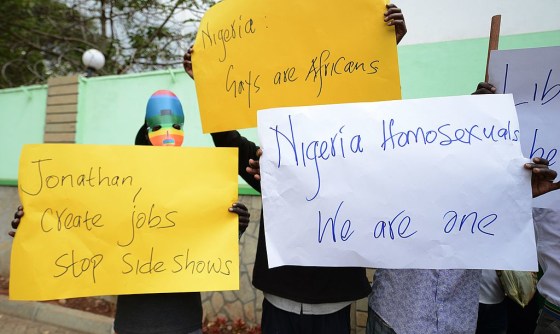 Nigeria:
Gays are Africans
Nigeria Homosexuals
We are one
Jonathan,
Create jobs
Stop Side Shows